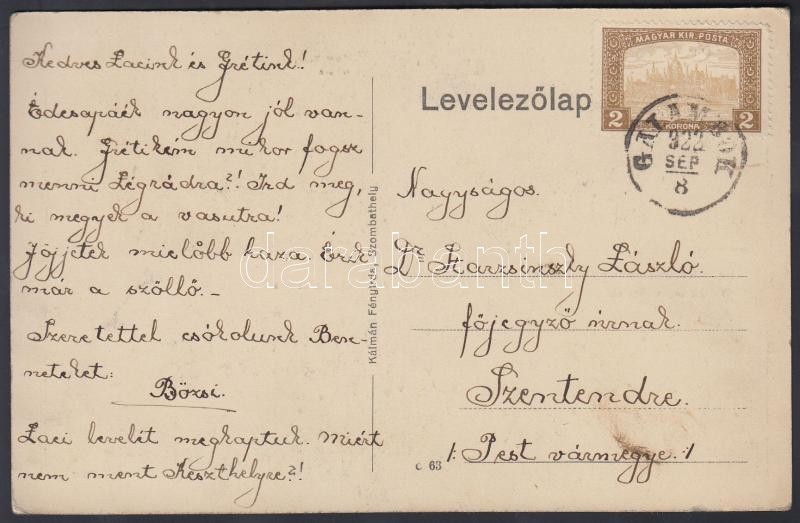 Kedves Lacink és Grétink!
Édesapáék nagyon jól van-
nak. Grétikém mikor fogsz
menni Légrádra?! Ird meg,
ki megyek a vasutra!
Jöjjetek mielőbb haza. Érik
már a szöllő.-
Szeretettel csókolunk Ben-
neteket:
Bözsi.
Laci levelét megkaptuk. Miért
nem ment Keszthelyre?!
Kálmán Fényirda, Szombathely
Levelezőlap
MAGYAR KIR. POSTA
2 KORONA 2
GALAMBOK
922
SEP
8
Nagyságos
Dr. Karzsinszky László
főjegyző úrnak.
Szentendre.
/: Pest vármegye :/
c 63
darabanth